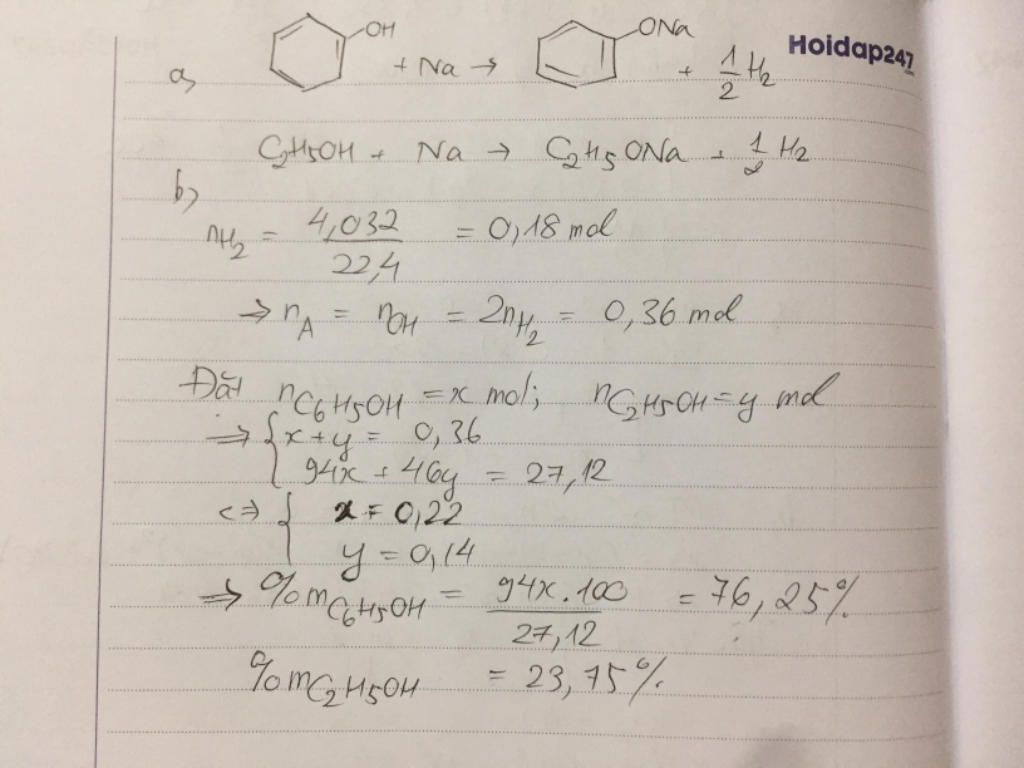 Hoidap247
a, OH + Na → ONa + 1/2 H2
C2H5OH + Na → C2H5ONa + 1/2 H2
b,
nH2 = 4,032/22,4 = 0,18 mol
⇒ nA = nOH = 2nH2 = 0,36 mol
Đặt nC6H5OH = x mol; nC2H5OH = y mol
⇒ { x + y = 0,36
94x + 46y = 27,12
<=> { x = 0,22
y = 0,14
⇒ %mC6H5OH = 94x.100/27,12 = 76,25%
%mC2H5OH = 23,75%